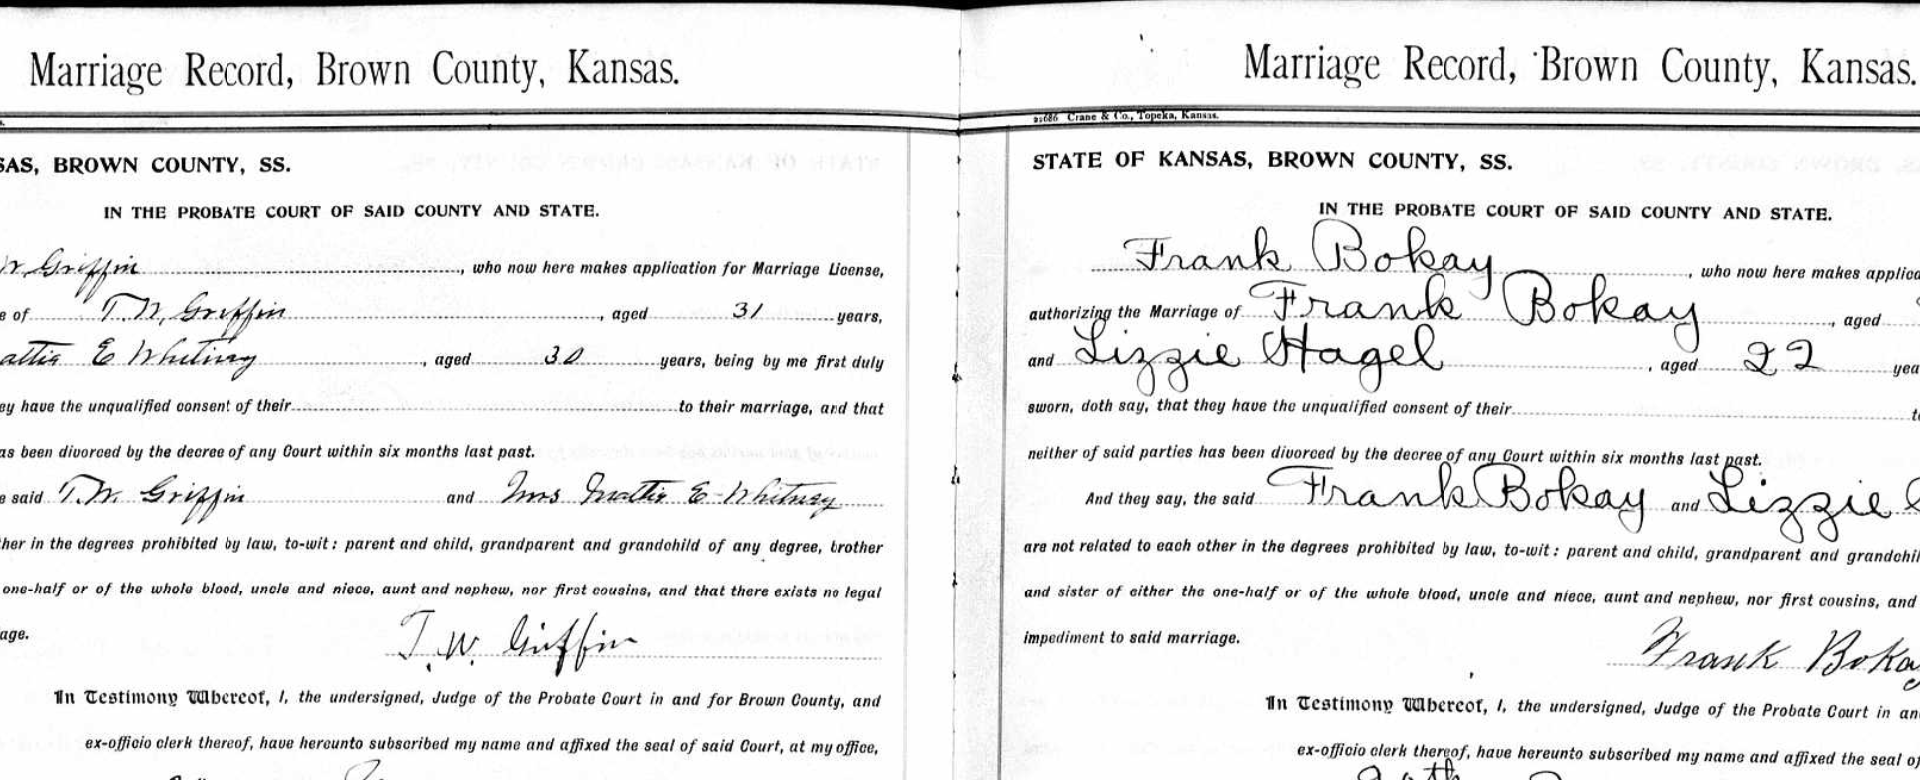 Marriage Record, Brown County, Kansas.
SAS, BROWN COUNTY, SS.
IN THE PROBATE COURT OF SAID COUNTY AND STATE.
W. Griffin, who now here makes application for Marriage License,
e of T. W. Griffin, aged 31 years,
attie E Whitney, aged 30 years, being by me first duly
ey have the unqualified consent of their to their marriage, and that
as been divorced by the decree of any Court within six months last past.
e said T. W. Griffin and Mrs Mattie E Whitney
her in the degrees prohibited by law, to-wit: parent and child, grandparent and grandchild of any degree, brother
one-half or of the whole blood, uncle and niece, aunt and nephew, nor first cousins, and that there exists no legal
age.
T. W. Griffin
In Testimony Whereof, I, the undersigned, Judge of the Probate Court in and for Brown County, and
ex-officio clerk thereof, have hereunto subscribed my name and affixed the seal of said Court, at my office,
Marriage Record, Brown County, Kansas.
Crane & Co., Topeka, Kansas.
STATE OF KANSAS, BROWN COUNTY, SS.
IN THE PROBATE COURT OF SAID COUNTY AND STATE.
Frank Bokay, who now here makes applica
authorizing the Marriage of Frank Bokay, aged
and Lizzie Hagel, aged 22 yea
sworn, doth say, that they have the unqualified consent of their to
neither of said parties has been divorced by the decree of any Court within six months last past.
And they say, the said Frank Bokay and Lizzie
are not related to each other in the degrees prohibited by law, to-wit: parent and child, grandparent and grandchil
and sister of either the one-half or of the whole blood, uncle and niece, aunt and nephew, nor first cousins, and
impediment to said marriage.
Frank Bokay
In Testimony Whereof, I, the undersigned, Judge of the Probate Court in an
ex-officio clerk thereof, have hereunto subscribed my name and affixed the seal of